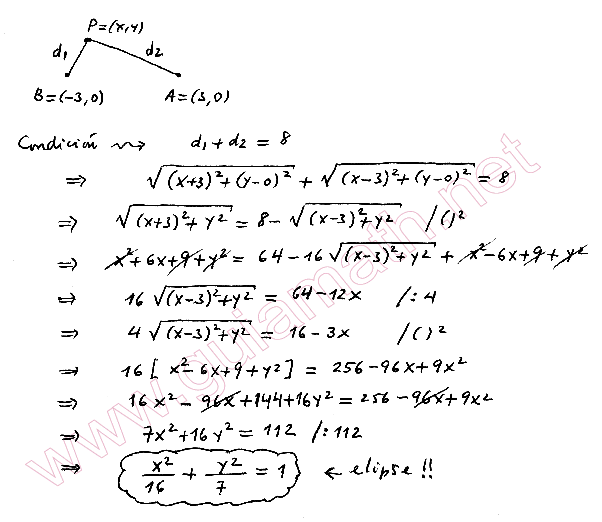 P=(x,y)
d₁ d₂
B=(-3,0) A=(3,0)
Condición ⇝ d₁+d₂ = 8
⇒ √((x+3)²+(y-0)²) + √((x-3)²+(y-0)²) = 8
⇒ √((x+3)²+y²) = 8-√((x-3)²+y²) /( )²
⇒ x²+6x+9+y² = 64-16√((x-3)²+y²) + x²-6x+9+y²
⇒ 16√((x-3)²+y²) = 64-12x /:4
⇒ 4√((x-3)²+y²) = 16-3x /( )²
⇒ 16[x²-6x+9+y²] = 256-96x+9x²
⇒ 16x²-96x+144+16y² = 256-96x+9x²
⇒ 7x²+16y² = 112 /:112
⇒ x²/16 + y²/7 = 1 ← elipse!!
www.guiamath.net